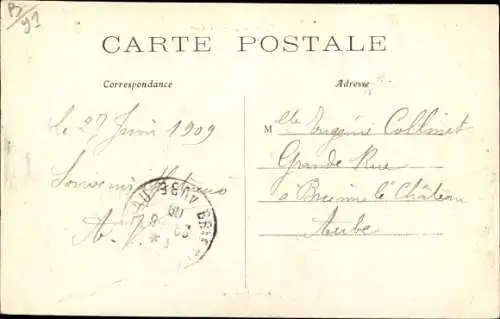 B/91
CARTE POSTALE
Correspondance
Adresse
Le 27 Juin 1909
Souvenir
A.
Mlle Eugénie Collinet
Grande Rue
à Brienne le Château
Aube
AUBE